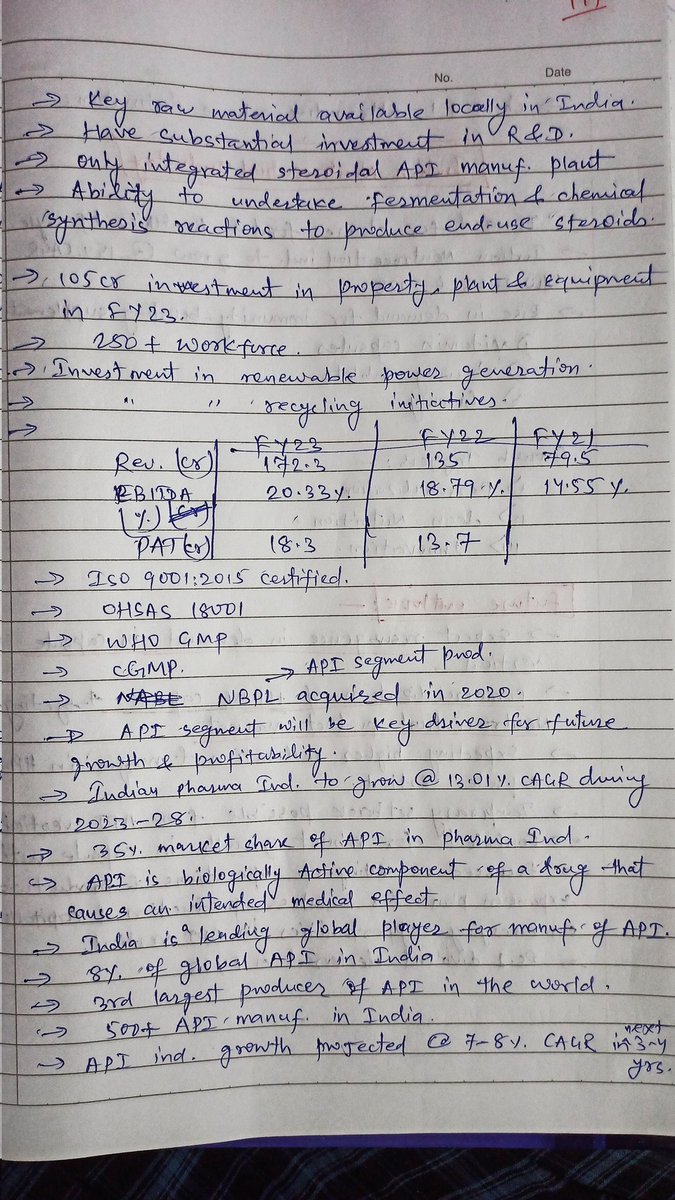 No. Date
→ Key raw material available locally in India.
→ Have substantial investment in R&D.
→ only integrated steroidal API manuf. plant
→ Ability to undertake fermentation & chemical
synthesis reactions to produce end-use steroids.
→ 105cr investment in property, plant & equipment
in FY23.
→ 250+ workforce.
→ Investment in renewable power generation.
→ " " recycling initiatives.
→
FY23 FY22 FY21
Rev. (cr) 172.3 135 79.5
EBITDA 20.33%. 18.79%. 14.55%.
(%.) (cr)
PAT (cr) 18.3 13.7
→ ISO 9001:2015 certified.
→ OHSAS 18001
→ WHO GMP
→ CGMP. → API segment prod.
→ NABL NBPL acquired in 2020.
→ API segment will be key driver for future
growth & profitability.
→ Indian pharma Ind. to grow @ 13.01%. CAGR during
2023-28.
→ 35%. market share of API in pharma Ind.
→ API is biologically Active component of a drug that
causes an intended medical effect.
→ India is a leading global player for manuf. of API.
→ 8%. of global API in India.
→ 3rd largest producer of API in the world.
→ 500+ API manuf. in India.
→ API ind. growth projected @ 7-8%. CAGR in next 3-4
yrs.